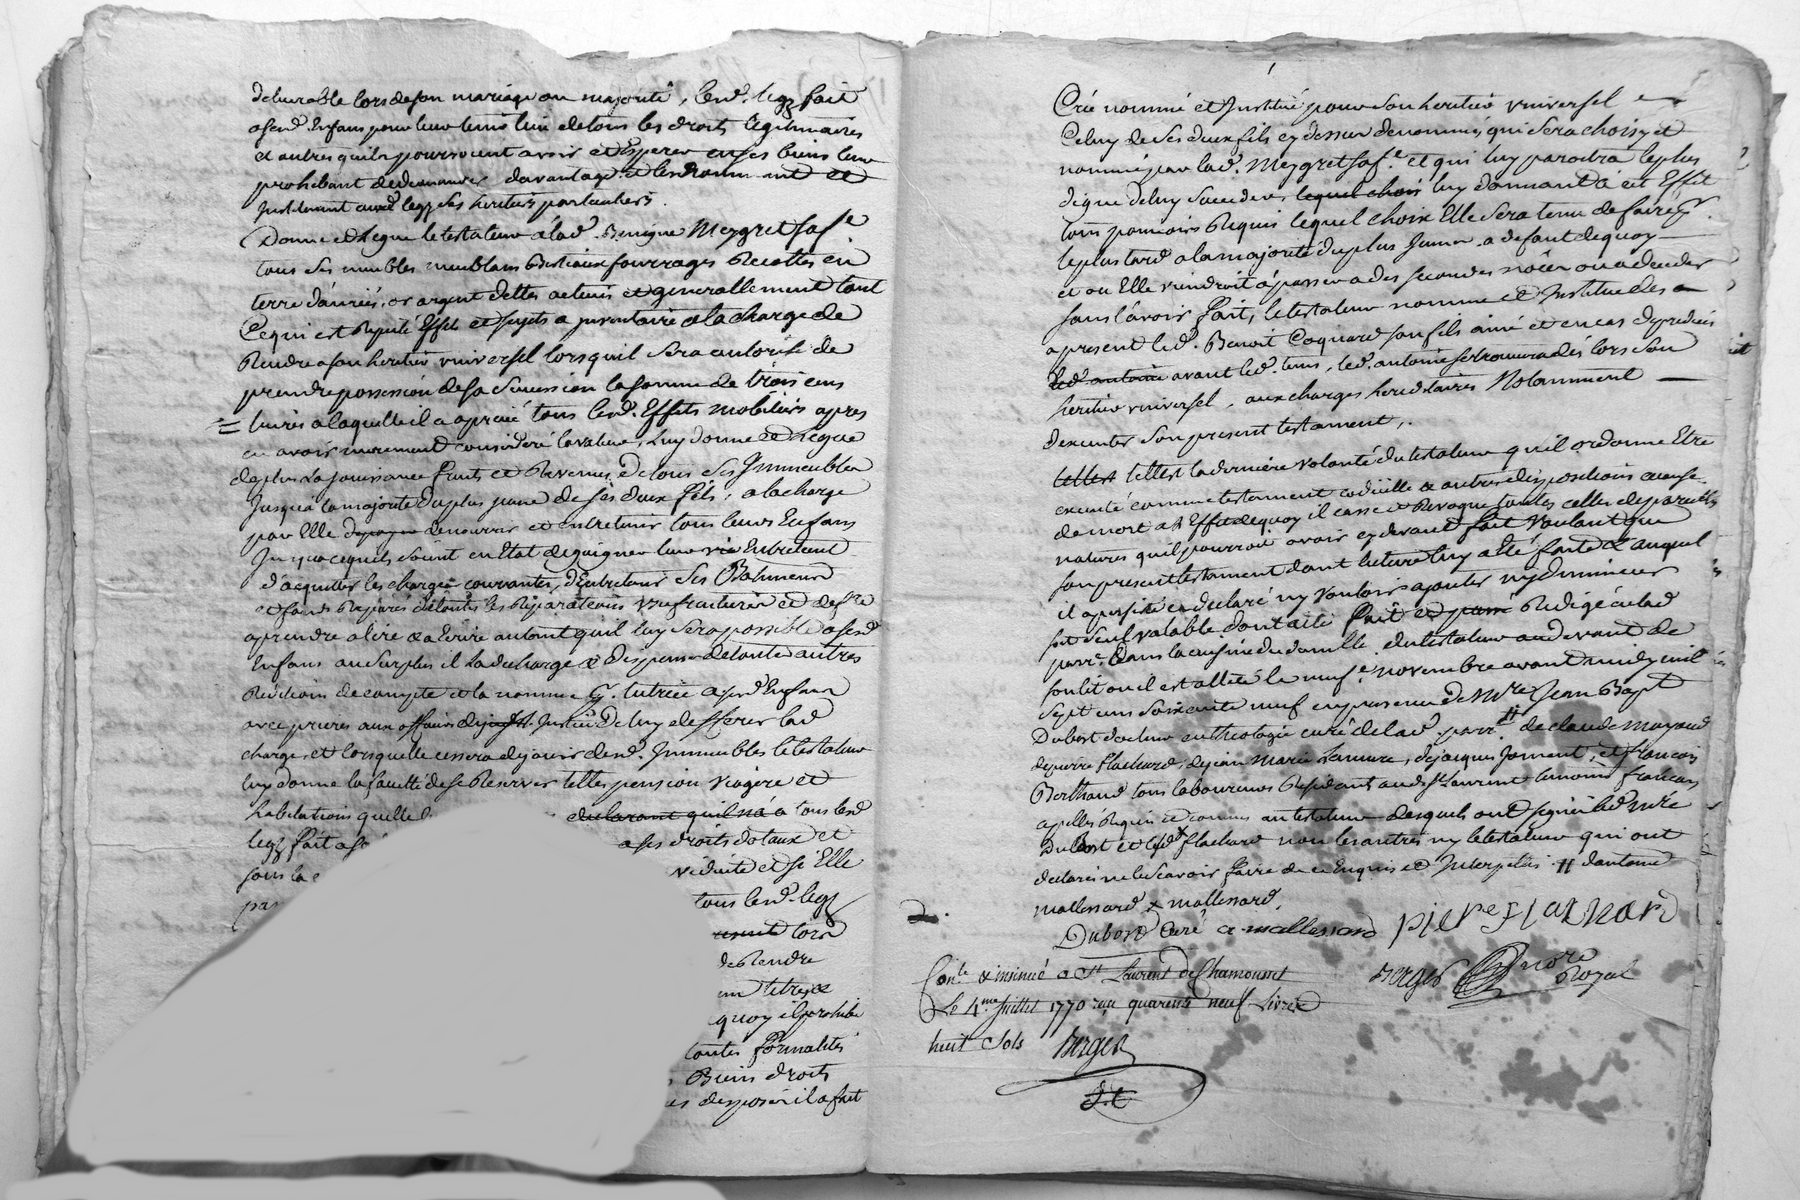 delivrable lors de son mariage ou majorité, lesd. legz fait
a sesd. Enfans pour leur tenir lieu de tous les droits legitimaires
et autres quils pourroient avoir et Esperer en ses biens leur
prohibant de demander davantage et les nommant et
Instituant auxd legz ses heritiers particuliers.
Donne et Legue le testateur a lad. Benigne Meygret sa fe
tous ses meubles meublans Bestiaux fourrages Recoltes en
terre danrées, or argent dettes actives et generallement tout
Ce qui est Reputé Effets et sujets a inventaire a la charge de
Rendre a son heritier vniversel lorsquil sera autorisé de
prendre possession de sa Succession la somme de trois cens
livres a laquelle il a aprecié tous lesd. Effets mobiliers apres
en avoir murement consideré la valeur, Luy donne et Legue
de plus La jouissance fruits et Revenus De tous ses Immeubles
Jusqua la majorité du plus jeune de ses deux fils, a la charge
par Elle de nourrir et entretenir tous leurs Enfans
Jusqua ce quils soient en Etat de gaigner leur vie Entretient
d'acquitter les charges courantes, d'Entretenir ses Batimens
et fonds Reparés de toutes les Reparations vsufructuaires et de faire
aprendre a lire & a Ecrire autant quil luy sera possible a sesd
Enfans au Surplus il La decharge & dispense de toutes autres
Redditions de compte et la nomme tutrice a sesd Enfans
avec prieres aux officiers de Justice De luy defferer lad
charge, et lorsquelle cessera de jouir desd. Immeubles le testateur
luy donne la faculté de se Reserver telles pension viagere et
habitations quelle declarant quil n'a tous lesd
legz fait a ses droits dotaux et
sous la viduité et si Elle
par tous lesd. legz
lors
de Rendre
quoy il prohibe
toutes formalités
Biens droits
disposé il a fait
Crée nommé et Institué pour son heritier vniversel
Celuy de ses deux fils cy dessus denommés qui sera choisy et
nommé par lad. Meygret sa fe. et qui luy paroitra le plus
digne de luy Succeder, lequel choix luy donnant à cet Effet
tous pouvoirs Requis lequel choix Elle sera tenue de faire
le plus tard a la majorité du plus Jeune. a defaut de quoy
et ou Elle viendroit à passer a des secondes nôces ou a deceder
sans l'avoir fait, le testateur nomme et Institue des
a present led. Benoit Coquard son fils ainé et en cas de predecés
led. antoine avant led. tems, led. antoine se trouvera dés lors son
heritier vniversel, aux charges hereditaires Notamment
dexecuter son present testament.
telle est telle est la derniere volonté du testateur qu'il ordonne Etre
executé comme testament codicille & autres dispositions a cause
de mort a l'Effet de quoy il casse et Revoque toutes celles de pareilles
natures qu'il pourroit avoir cy devant fait Voulant que
son present testament dont lecture luy a eté faite & auquel
il a persisté et declaré ny vouloir ajouter ny diminuer
soit seul valable dont acte fait et passé Redigé en lad
parr. Dans la cuisine du domicille du testateur au devant de
son lit ou il est allité le neufe. novembre avant midy mil
sept cens soixante neuf en presence de Mre Jean Bapt
Dubost docteur en theologie curé de lad. parr. de claude mayoud
de pierre flachard, de jean marie Lanniere, de jacques Joment, et françois
Berthaud tous laboureurs Residants aud. St Laurent temoins françois
apellés Requis et connus au testateur desquels ont signé led mre
Dubost et led flachard non les autres ny le testateur qui ont
declaré ne le sçavoir faire de ce Enquis et Interpellés. d'antoine
mallessard & mallessard.
Dubost Curé a mallessard pierre flachard
Berger Nore Royal
Conlé & insinué a St Laurent de Chamousset
Le 4me Juillet 1770 reçu quarente neuf Livres
huit sols Berger